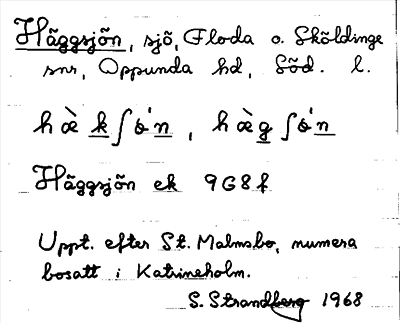 Häggsjön, sjö, Floda o. Sköldinge
snr, Oppunda hd, Söd. l.
hæ̀kʃǿn, hæ̀gʃǿn
Häggsjön ek 9G8f
Uppt. efter St. Malmsbo, numera
bosatt i Katrineholm.
S. Strandberg 1968